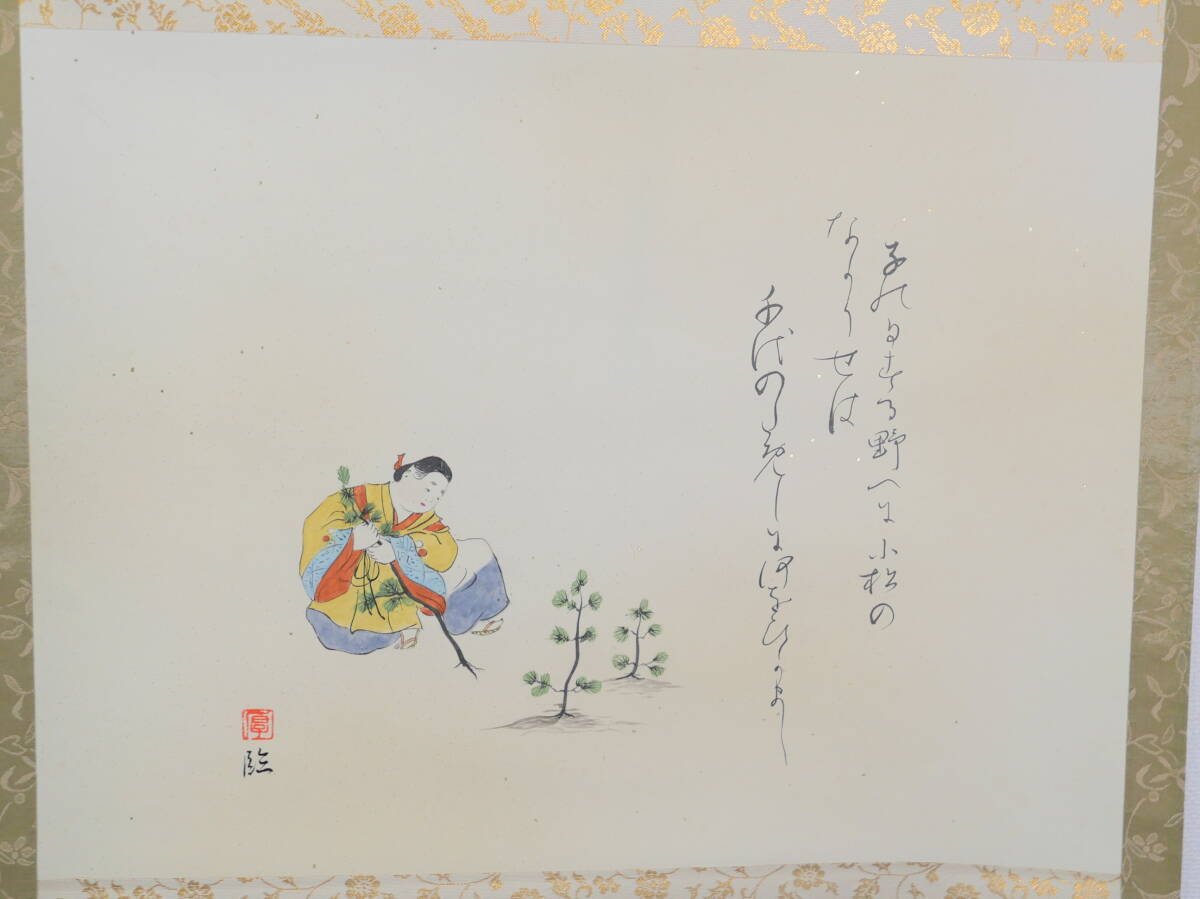 子能日もする野へに小松の
なかりせは
千代のためしに何をひかまし
臨